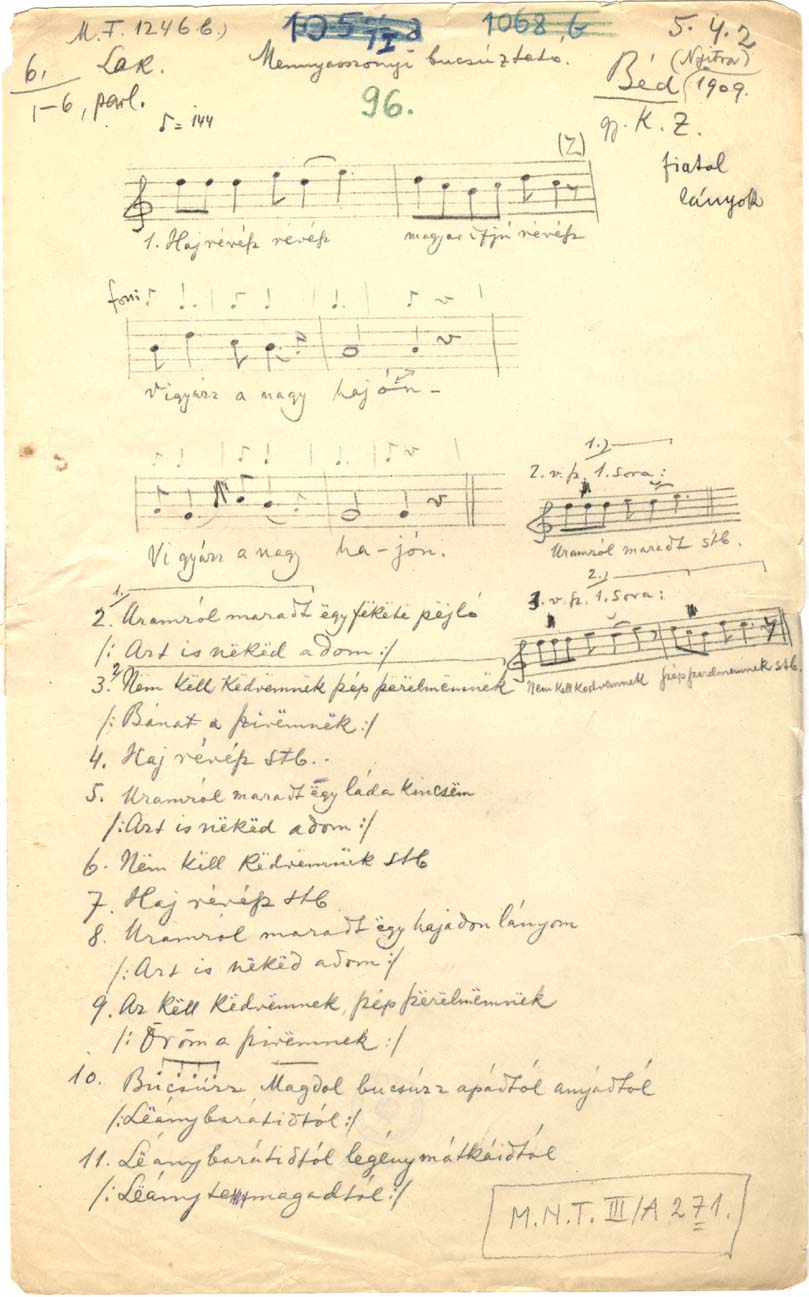 M.F. 1246 b.)
1068 b
5. 4. 2
6.
Lak.
Mennyasszonyi bucsúztató.
Béd (Nyitra)
1909.
1–6, parl.
96.
gy. K. Z.
♪= 144
fiatal
lányok
1. Haj révész révész magyar ifjú révész
Vigyázz a nagy hajón–
Vi gyázz a nagy ha-jón.
1.)
2. v.sz. 1. sora:
Uramról maradt stb.
2.)
3. v.sz. 1. sora:
Nem kell kedvemnek szép szerelmemnek stb.
1.)
2. Uramról maradt ëgy fekete pejló
/: Azt is nëkëd adom :/
2.)
3. Nëm këll kedvemnëk szép szërelmemnëk
/: Bánat a szivëmnëk :/
4. Haj révész stb..
5. Uramról maradt ëgy láda kincsëm
/: Azt is nëkëd adom :/
6. Nëm këll këdvemnek stb
7. Haj révész stb
8. Uramról maradt ëgy hajadon lányom
/: Azt is nëkëd adom :/
9. Az këll këdvëmnek, szép szërelmëmnëk
/: Öröm a szivëmnek :/
10. Búcsúzz Magdol bucsúzz apádtól anyádtól
/: Lëány barátidtól :/
11. Lëány barátidtól legény mátkáidtól
/: Lëány te magadtól :/
M.N.T. III/A 271.